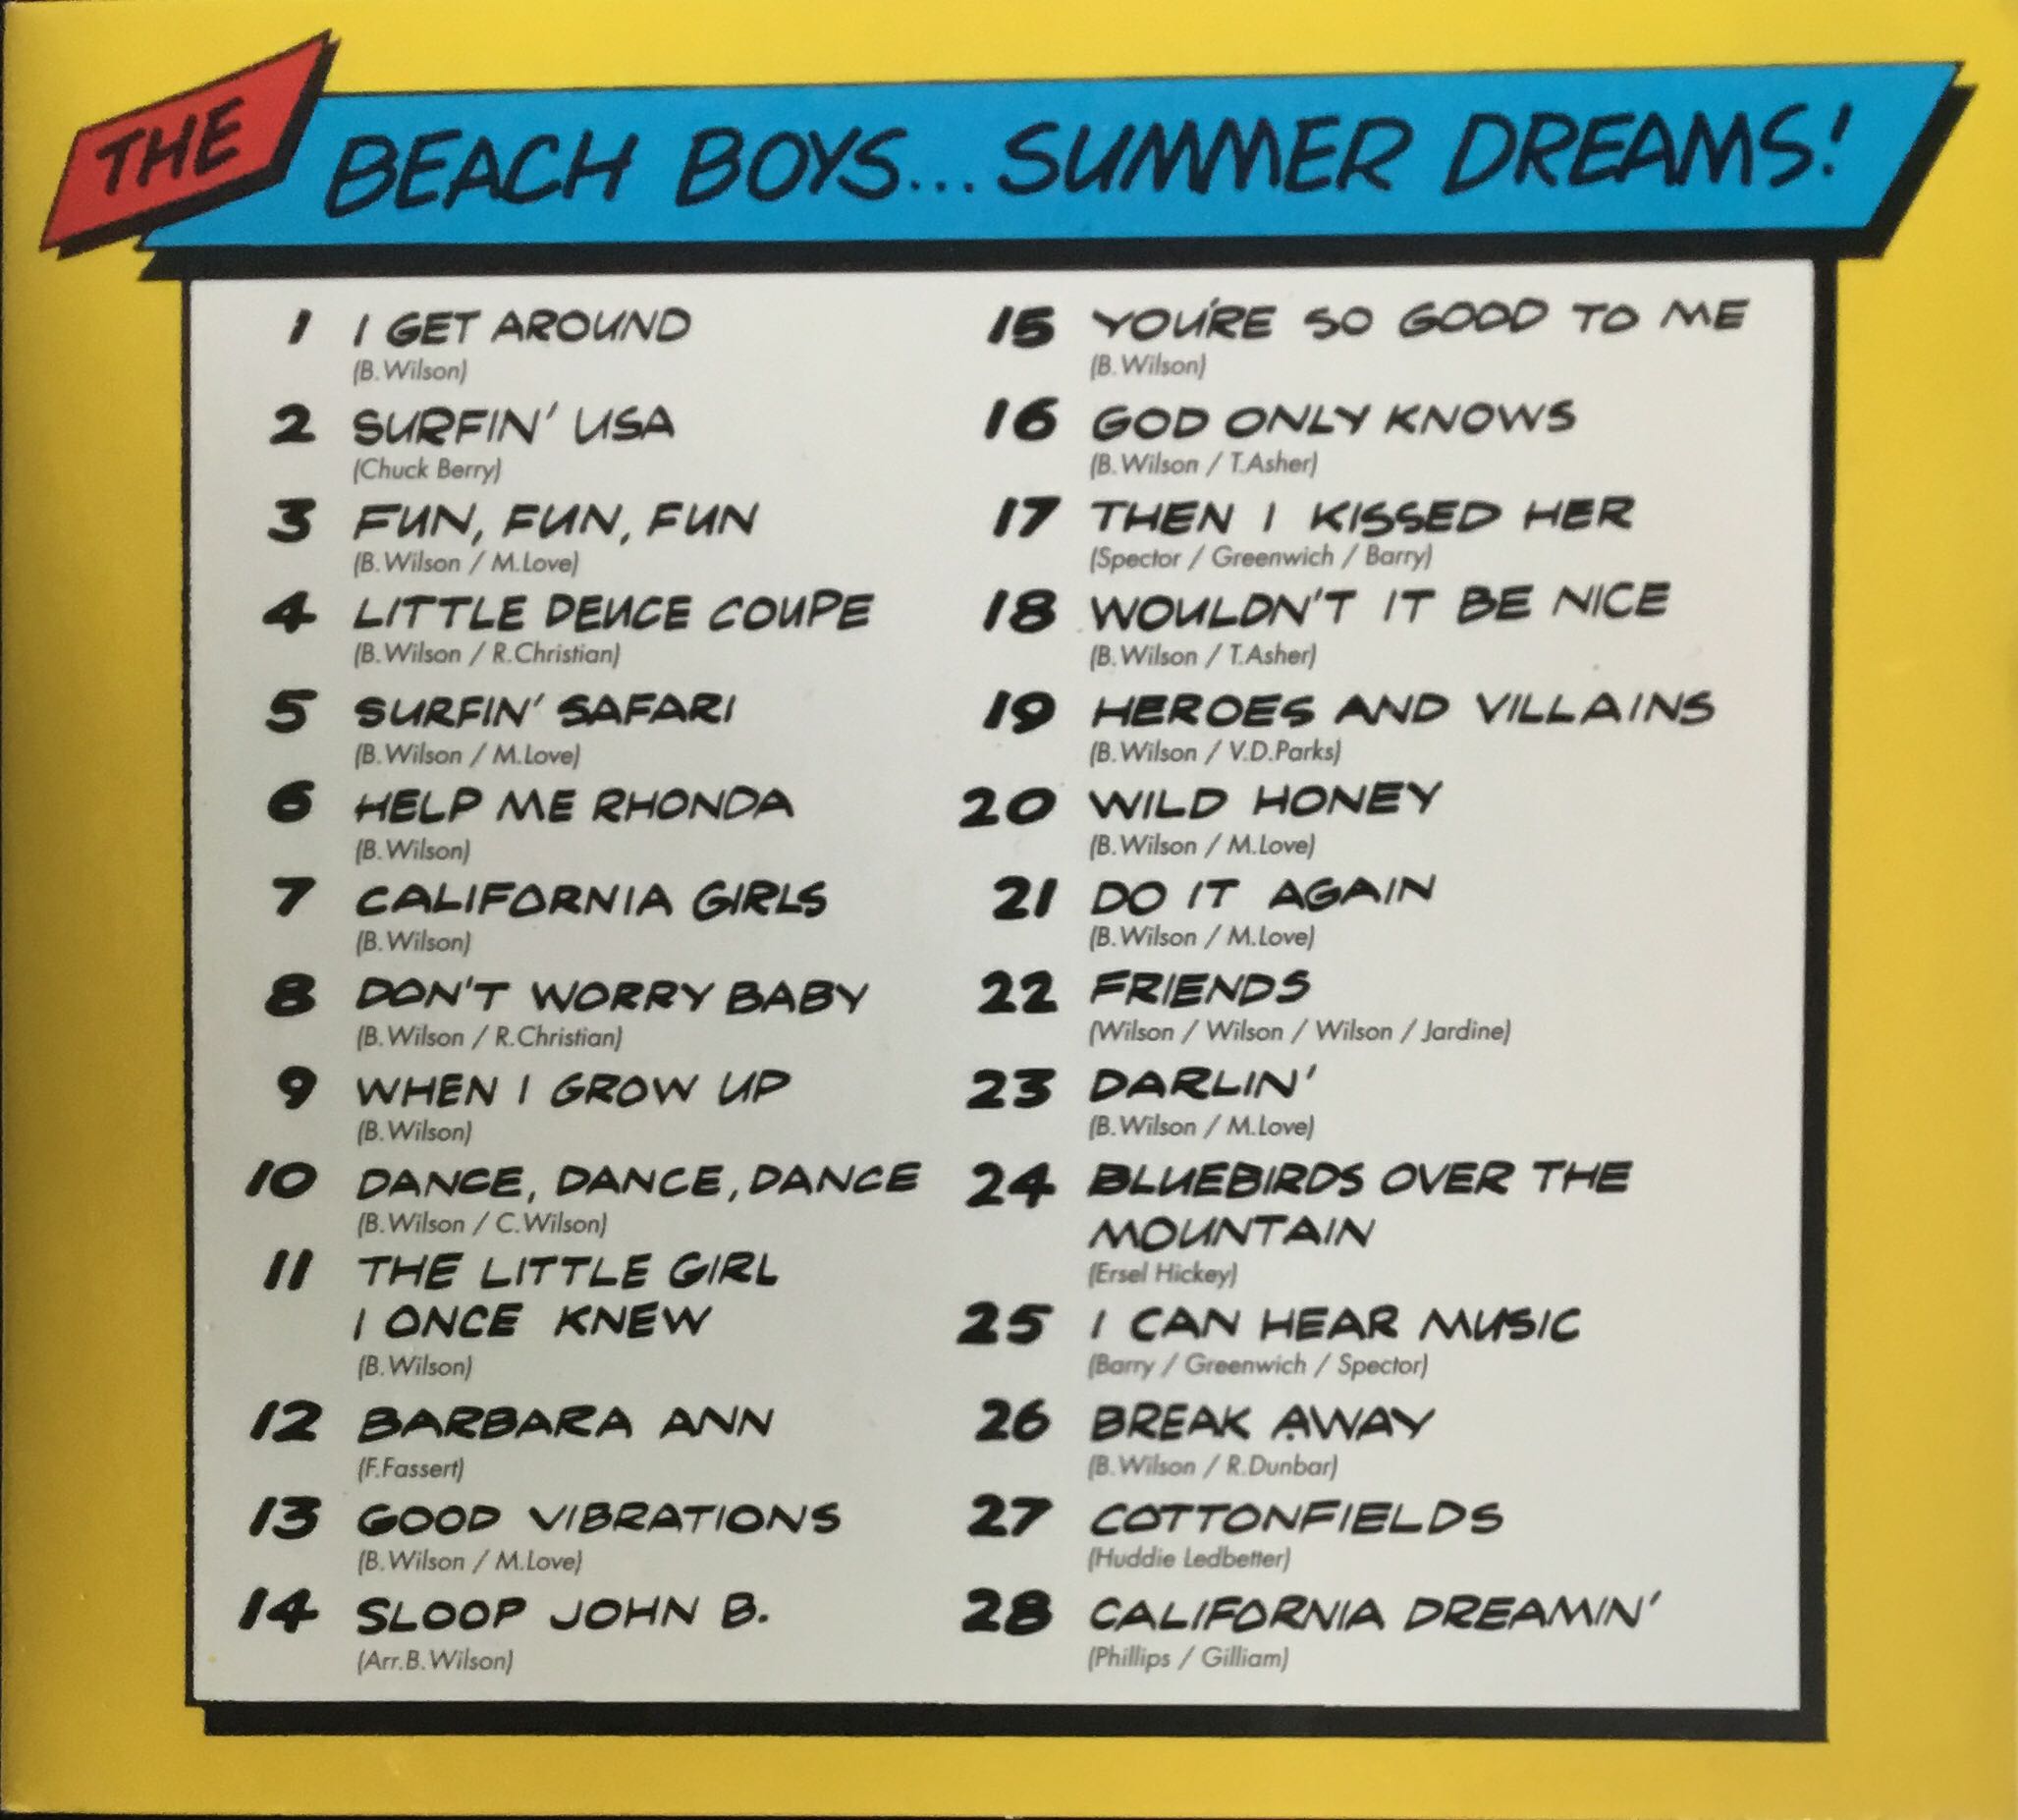 THE
BEACH BOYS... SUMMER DREAMS!
1 I GET AROUND
(B.Wilson)
2 SURFIN' USA
(Chuck Berry)
3 FUN, FUN, FUN
(B.Wilson / M.Love)
4 LITTLE DEUCE COUPE
(B.Wilson / R.Christian)
5 SURFIN' SAFARI
(B.Wilson / M.Love)
6 HELP ME RHONDA
(B.Wilson)
7 CALIFORNIA GIRLS
(B.Wilson)
8 DON'T WORRY BABY
(B.Wilson / R.Christian)
9 WHEN I GROW UP
(B.Wilson)
10 DANCE, DANCE, DANCE
(B.Wilson / C.Wilson)
11 THE LITTLE GIRL
I ONCE KNEW
(B.Wilson)
12 BARBARA ANN
(F.Fassert)
13 GOOD VIBRATIONS
(B.Wilson / M.Love)
14 SLOOP JOHN B.
(Arr.B.Wilson)
15 YOU'RE SO GOOD TO ME
(B.Wilson)
16 GOD ONLY KNOWS
(B.Wilson / T.Asher)
17 THEN I KISSED HER
(Spector / Greenwich / Barry)
18 WOULDN'T IT BE NICE
(B.Wilson / T.Asher)
19 HEROES AND VILLAINS
(B.Wilson / V.D.Parks)
20 WILD HONEY
(B.Wilson / M.Love)
21 DO IT AGAIN
(B.Wilson / M.Love)
22 FRIENDS
(Wilson / Wilson / Wilson / Jardine)
23 DARLIN'
(B.Wilson / M.Love)
24 BLUEBIRDS OVER THE
MOUNTAIN
(Ersel Hickey)
25 I CAN HEAR MUSIC
(Barry / Greenwich / Spector)
26 BREAK AWAY
(B.Wilson / R.Dunbar)
27 COTTONFIELDS
(Huddie Ledbetter)
28 CALIFORNIA DREAMIN'
(Phillips / Gilliam)